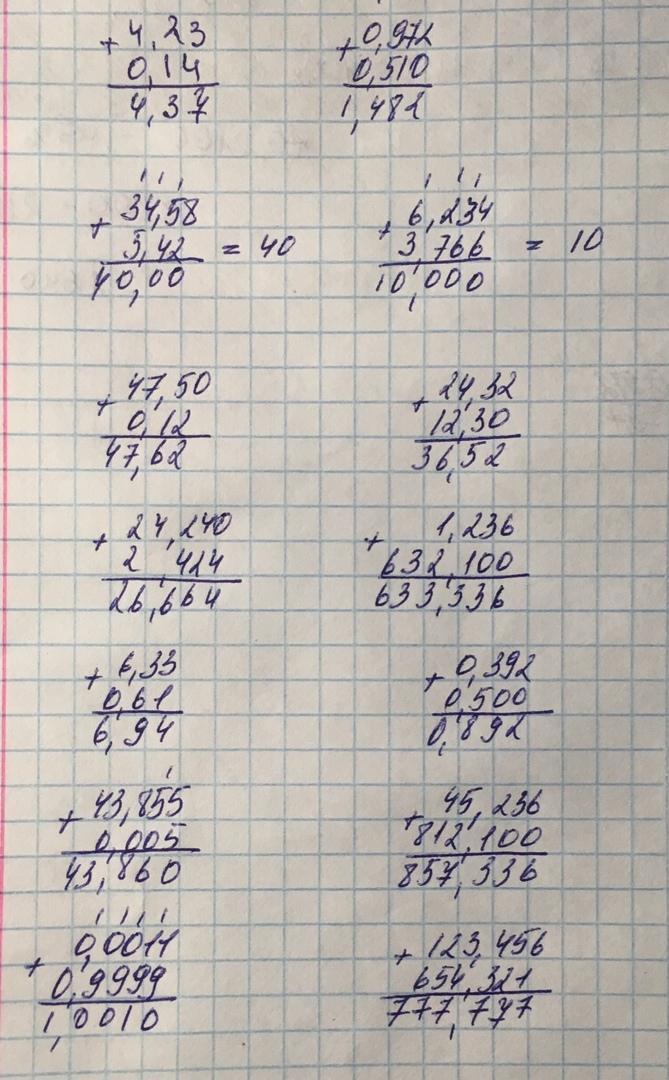 + 4,23 + 0,972
0,14 0,510
4,37 1,482
+ 34,58 + 6,234
5,42 = 40 3,766 = 10
40,00 10,000
+ 47,50 + 24,32
0,12 12,30
47,62 36,52
+ 24,240 + 1,236
2,424 632,100
26,664 633,336
+ 6,33 + 0,392
0,61 0,500
6,94 0,892
+ 43,855 + 45,236
0,005 812,100
43,860 857,336
+ 0,0011 + 123,456
0,9999 654,321
1,0010 777,777